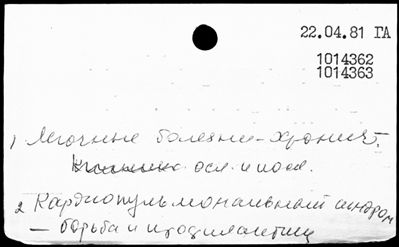 22.04.81 ГА
1014362
1014363
1 Легочные болезни – хронич.
осл. и посл.
2 Кардиопульмональный синдром
– борьба и профилактика